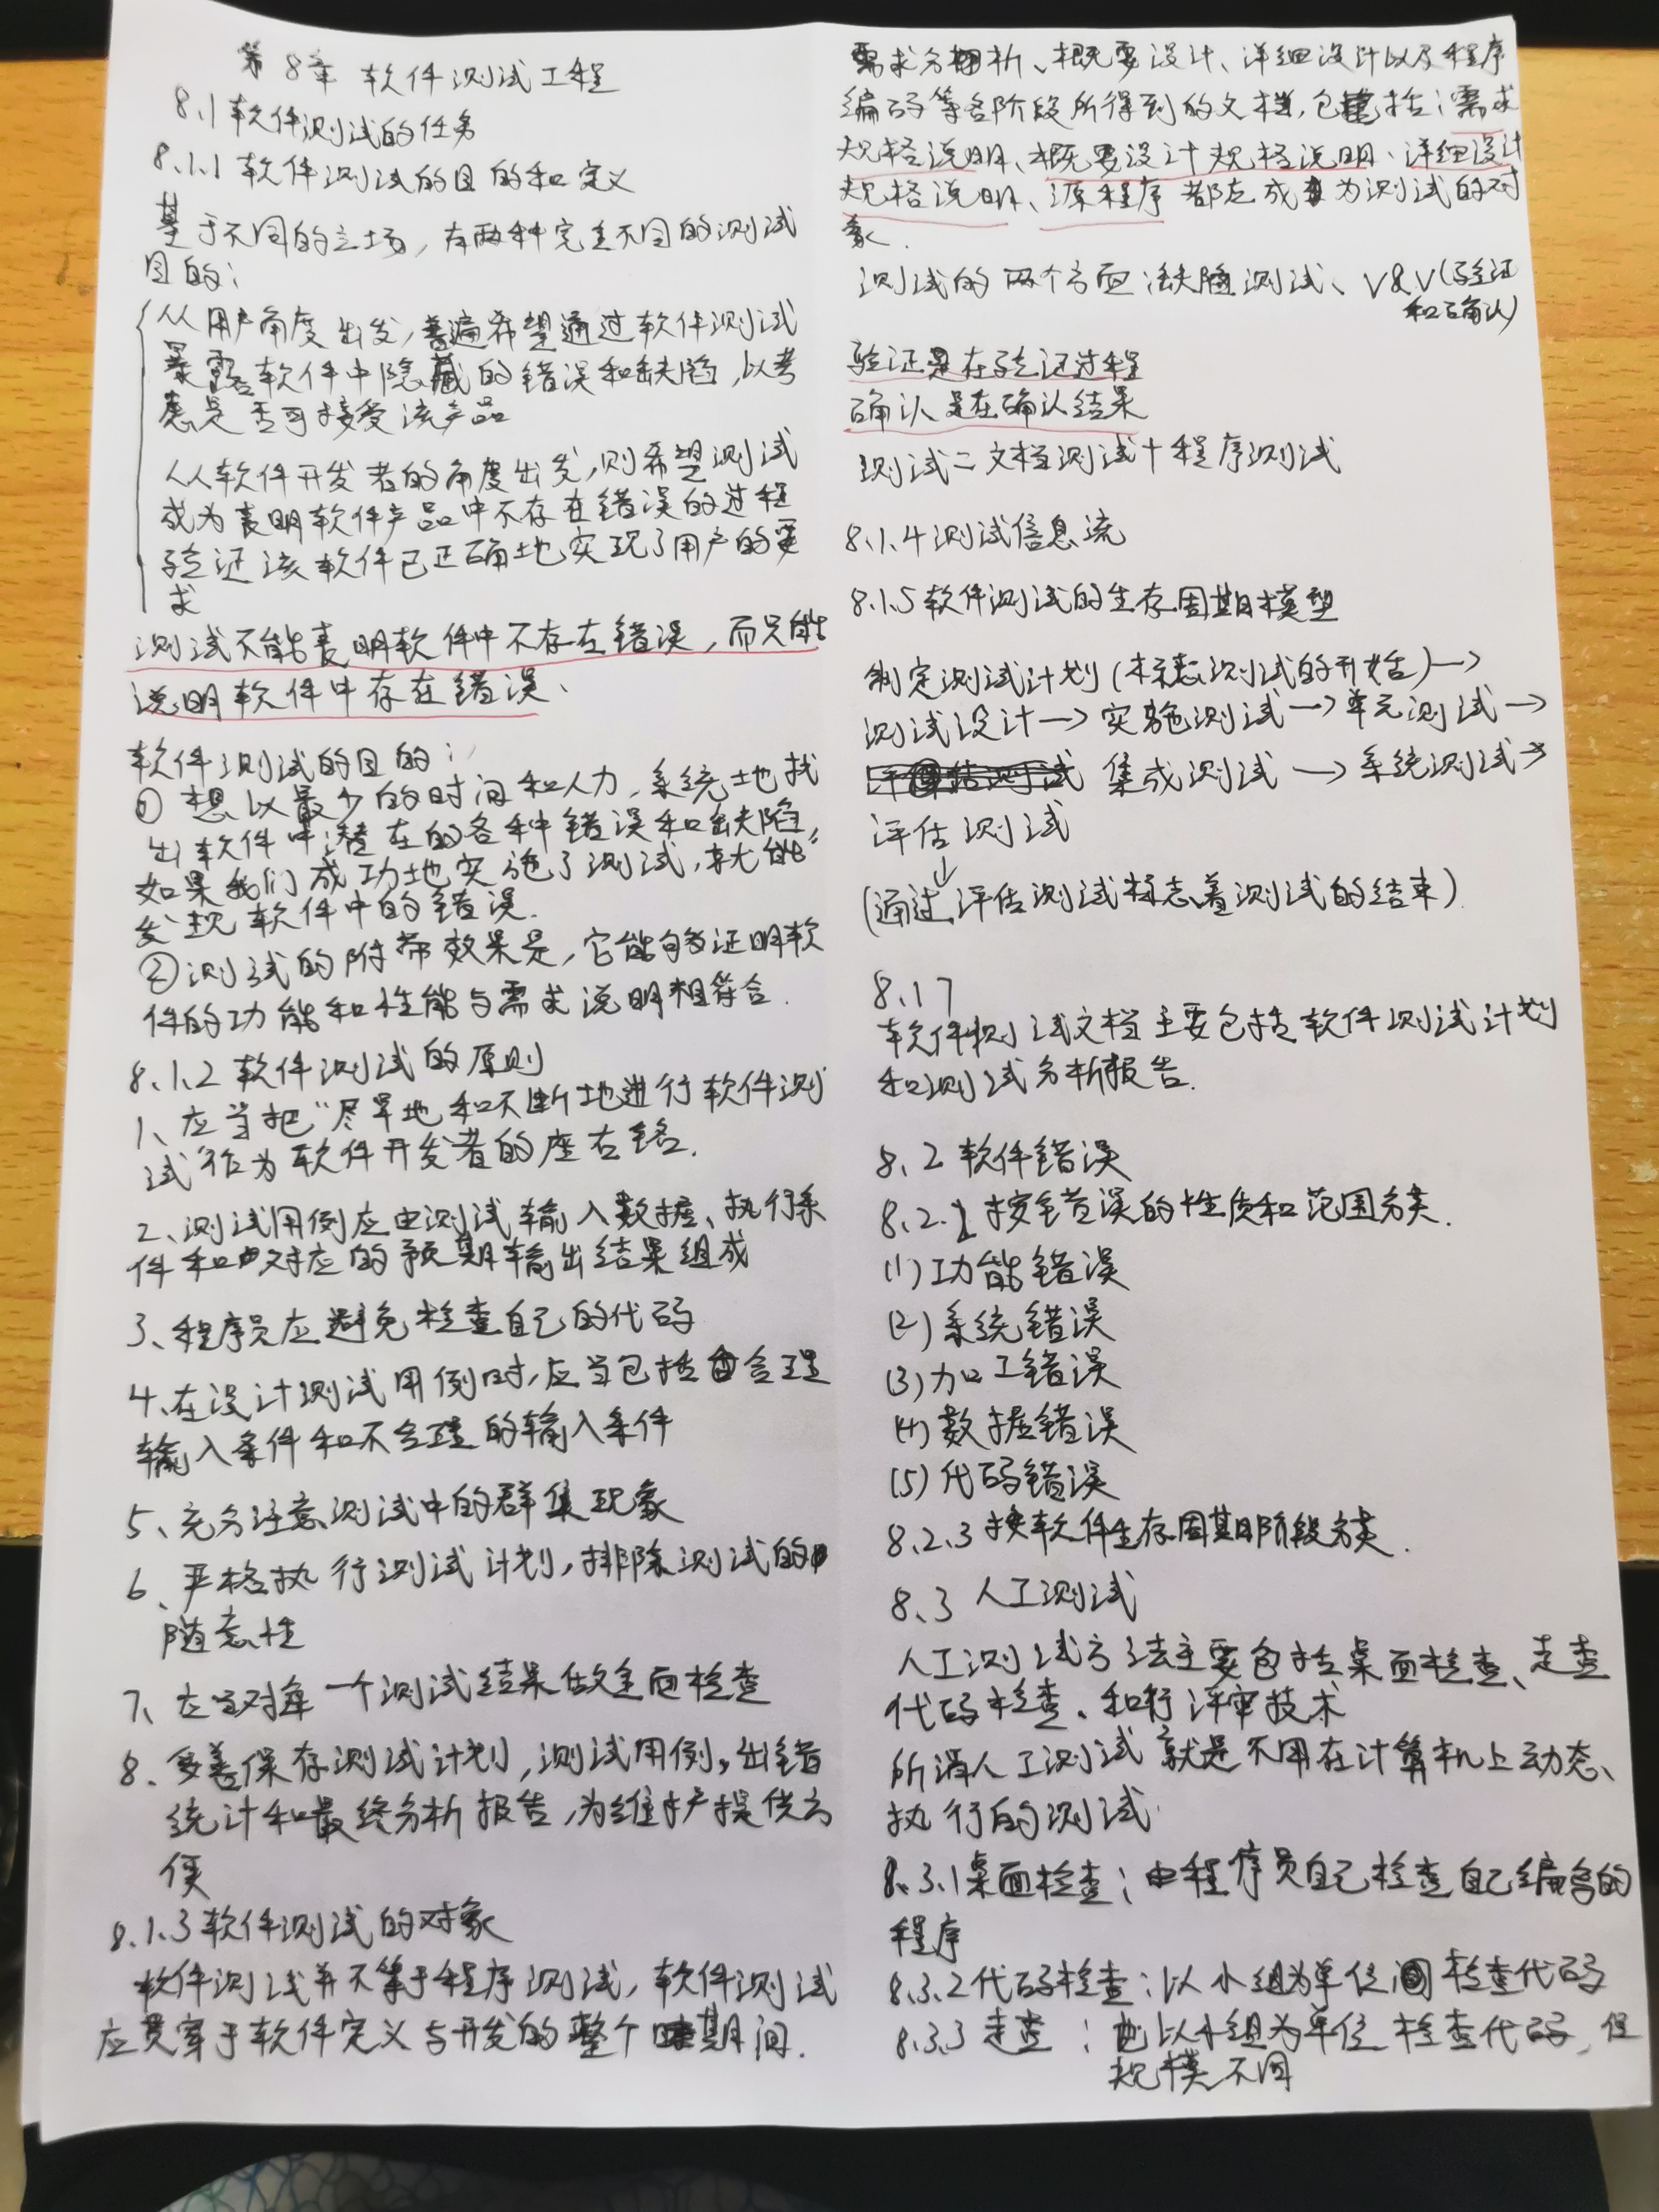 第8章 软件测试工程
8.1软件测试的任务
8.1.1软件测试的目的和定义
基于不同的立场,有两种完全不同的测试
目的:
从用户角度出发,普遍希望通过软件测试
暴露软件中隐藏的错误和缺陷,以考
虑是否可接受该产品
从软件开发者的角度出发,则希望测试
成为表明软件产品中不存在错误的过程
验证该软件已正确地实现了用户的要
求
测试不能表明软件中不存在错误,而只能
说明软件中存在错误、
软件测试的目的:
① 想以最少的时间和人力,系统地找
出软件中潜在的各种错误和缺陷,
如果我们成功地实施了测试,就能
发现软件中的错误.
②测试的附带效果是,它能够证明软
件的功能和性能与需求说明相符合.
8.1.2软件测试的原则
1、应当把“尽早地和不断地进行软件测
试”作为软件开发者的座右铭.
2、测试用例应由测试输入数据、执行条
件和对应的预期输出结果组成
3、程序员应避免检查自己的代码
4、在设计测试用例时,应当包括合理
输入条件和不合理的输入条件
5、充分注意测试中的群集现象
6、严格执行测试计划,排除测试的
随意性
7、应当对每一个测试结果做全面检查
8、妥善保存测试计划,测试用例,出错
统计和最终分析报告,为维护提供方
便
8.1.3软件测试的对象
软件测试并不等于程序测试,软件测试
应贯穿于软件定义与开发的整个期间.
需求分析、概要设计、详细设计以及程序
编码等各阶段所得到的文档,包括:需求
规格说明、概要设计规格说明、详细设计
规格说明、源程序都应成为测试的对
象.
测试的两个方面:缺陷测试、V&V(验证
和确认)
验证是在验证过程
确认是在确认结果
测试=文档测试+程序测试
8.1.4测试信息流
8.1.5软件测试的生存周期模型
制定测试计划(标志测试的开始)→
测试设计→实施测试→单元测试→
集成测试→系统测试→
评估测试
↓
(通过评估测试标志着测试的结束)
8.1.7
软件测试文档主要包括软件测试计划
和测试分析报告.
8.2软件错误
8.2.1按错误的性质和范围分类.
(1)功能错误
(2)系统错误
(3)加工错误
(4)数据错误
(5)代码错误
8.2.3按软件生存周期阶段分类.
8.3 人工测试
人工测试方法主要包括桌面检查、走查
代码检查、和行评审技术
所谓人工测试就是不用在计算机上动态、
执行的测试
8.3.1桌面检查:由程序员自己检查自己编写的
程序
8.3.2代码检查:以小组为单位检查代码
8.3.3走查:也以小组为单位检查代码,但
规模不同